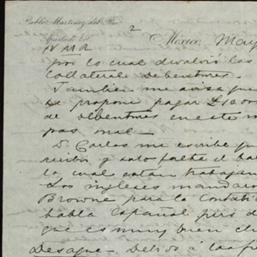 Pablo Martinez del Rio
2
Apartado
Mexico, May
N M R
por lo cual disolvió las
Collateral Debentures.
Tambien me avisa que
se propone pagar £10.00
de Debentures en este m
pas mal.
D. Carlos me escribe q
recibo y solo falta el ba
lo cual estan trabajan
Los ingleses mandaron
Browne para la Contabi
habla Español pues d
que es muy buen ch
Desague. Debido á las fu